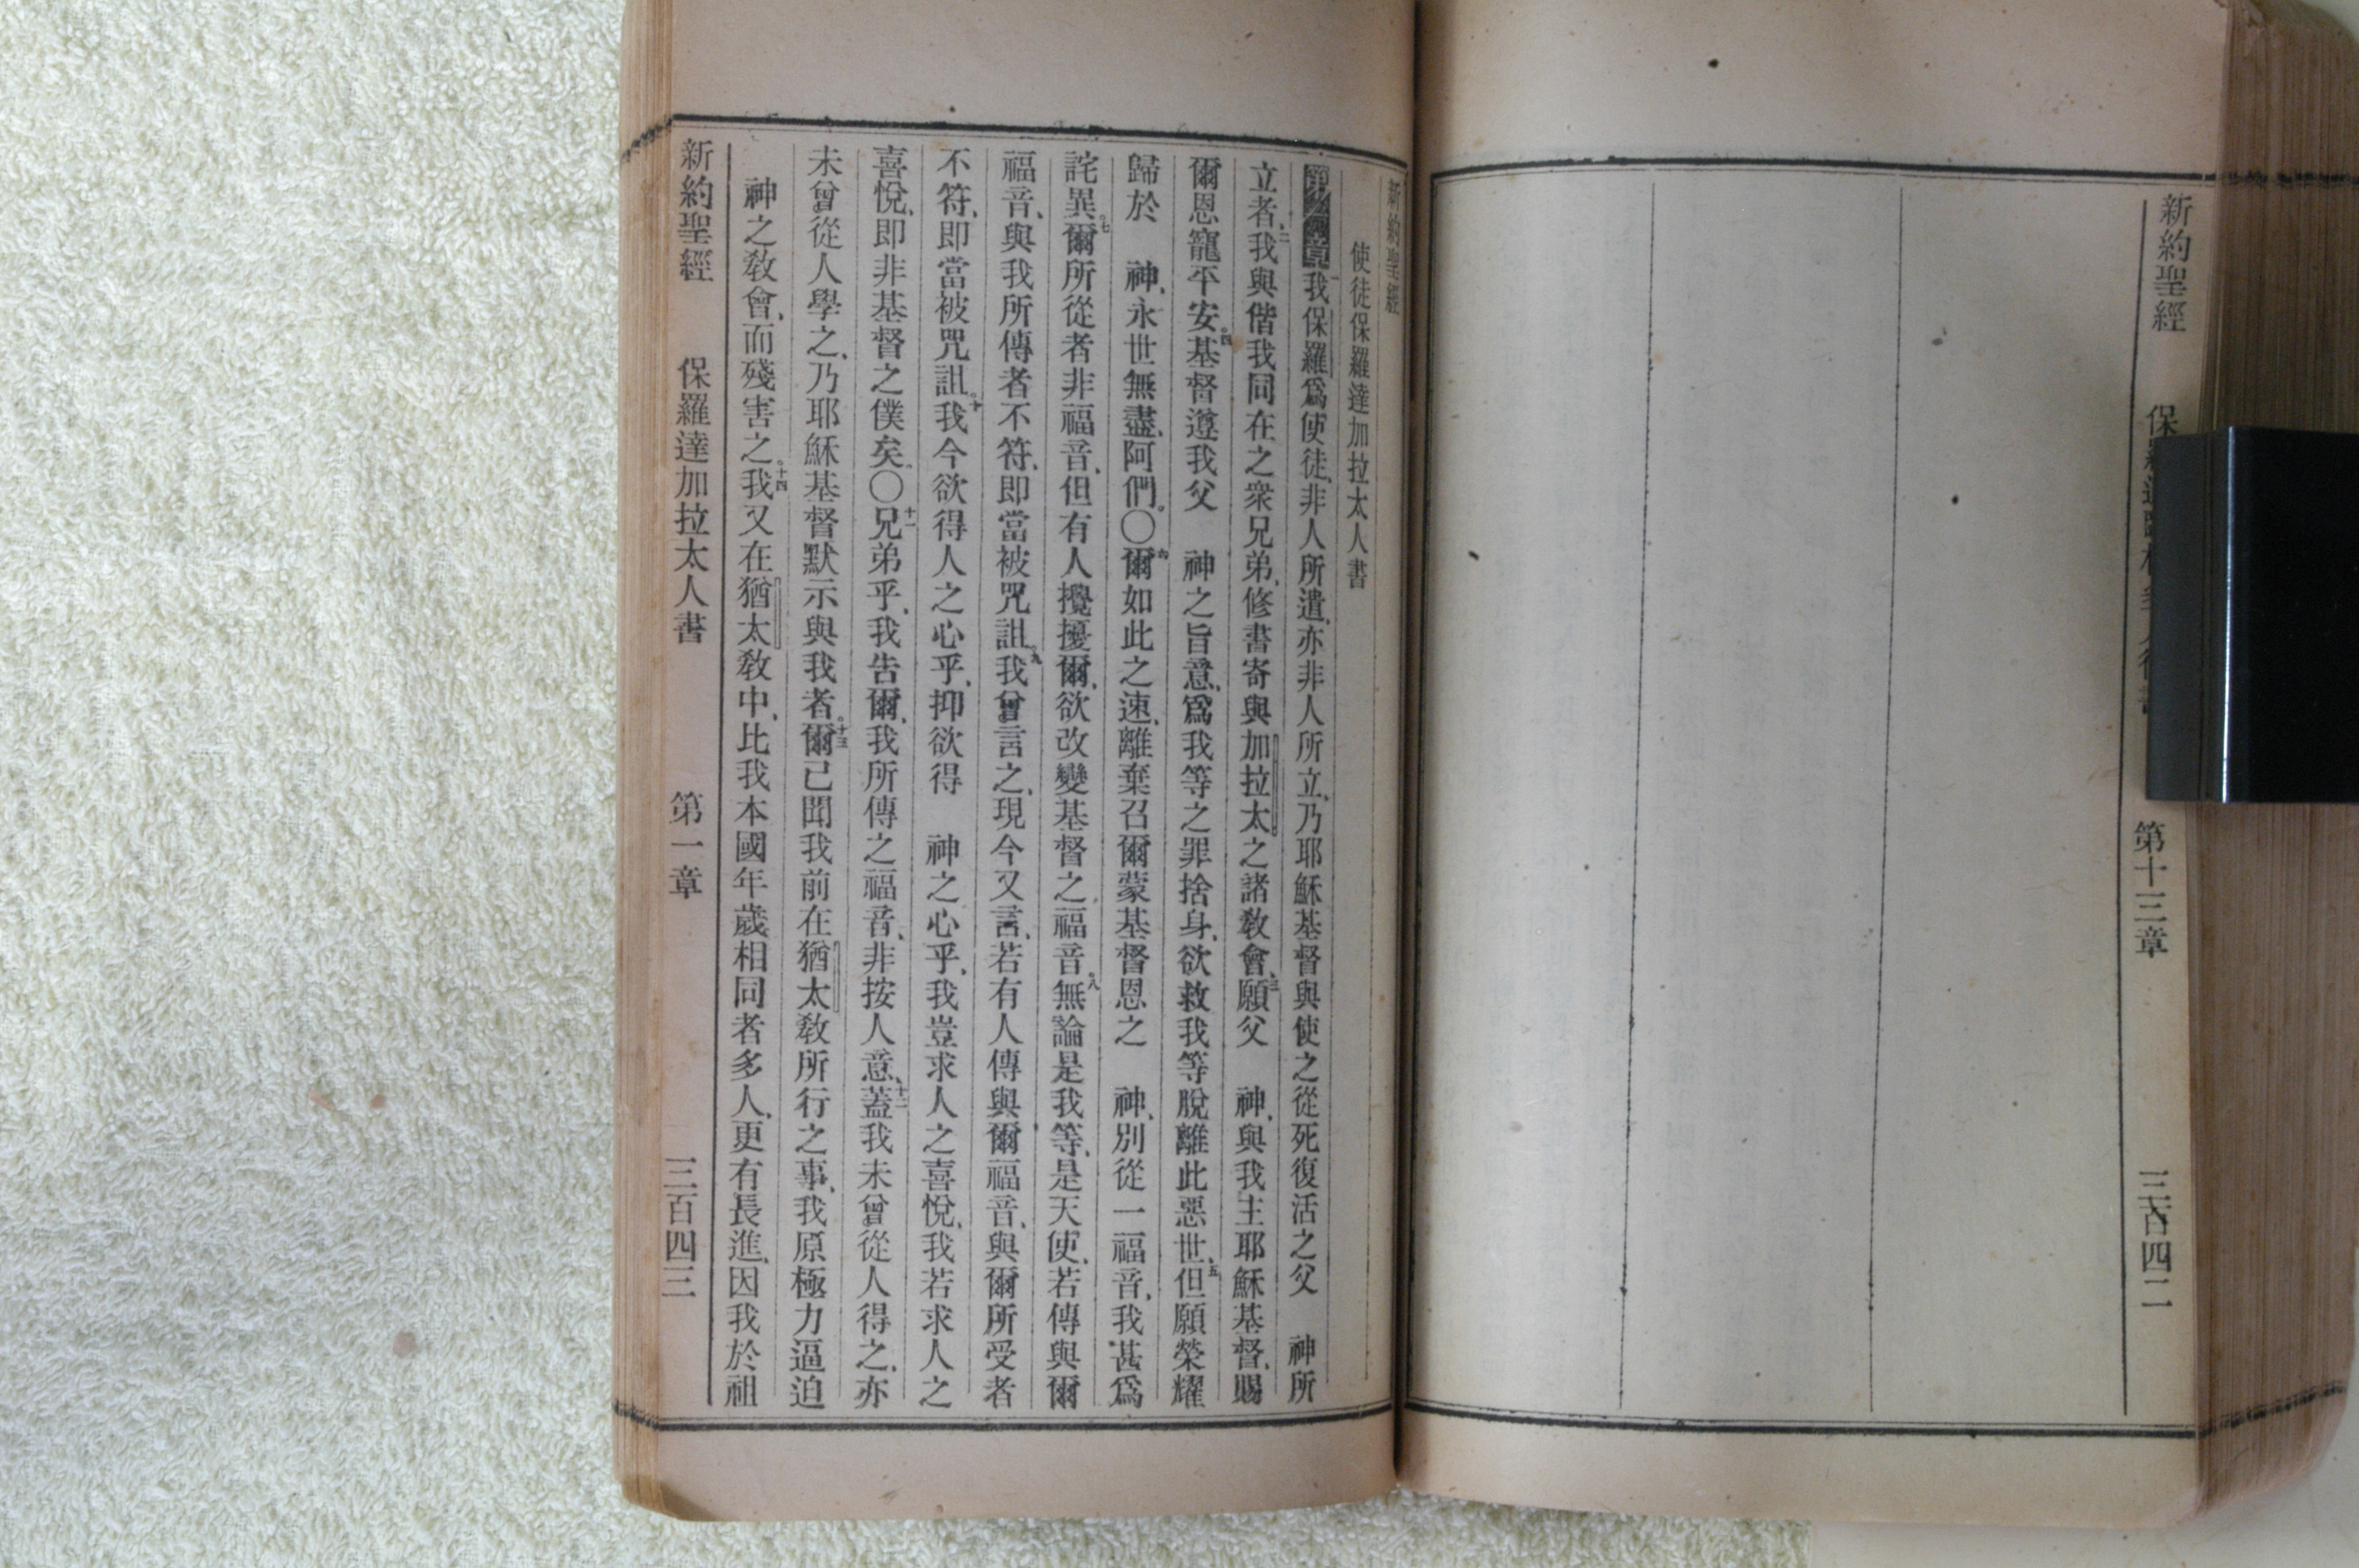 新約聖經
第十三章
三百四二
新約聖經
使徒保羅達加拉太人書
第一章一我保羅爲使徒、非人所遣、亦非人所立、乃耶穌基督與使之從死復活之父 神所
立者、二我與偕我同在之衆兄弟、修書寄與加拉太之諸敎會、三願父 神、與我主耶穌基督、賜
爾恩寵平安。四基督遵我父 神之旨意、爲我等之罪捨身、欲救我等脫離此惡世、五但願榮耀
歸於 神、永世無盡、阿們。〇六爾如此之速、離棄召爾蒙基督恩之 神、別從一福音、我甚爲
詫異。七爾所從者非福音、但有人攪擾爾、欲改變基督之福音。八無論是我等、是天使、若傳與爾
福音、與我所傳者不符、即當被咒詛。九我曾言之、現今又言、若有人傳與爾福音、與爾所受者
不符、即當被咒詛。十我今欲得人之心乎、抑欲得 神之心乎、我豈求人之喜悅、我若求人之
喜悅、即非基督之僕矣。〇十一兄弟乎、我告爾、我所傳之福音、非按人意、十二蓋我未曾從人得之、亦
未曾從人學之、乃耶穌基督默示與我者。十三爾已聞我前在猶太敎所行之事、我原極力逼迫
神之敎會、而殘害之。十四我又在猶太敎中、比我本國年歲相同者多人、更有長進、因我於祖
新約聖經 保羅達加拉太人書 第一章 三百四三